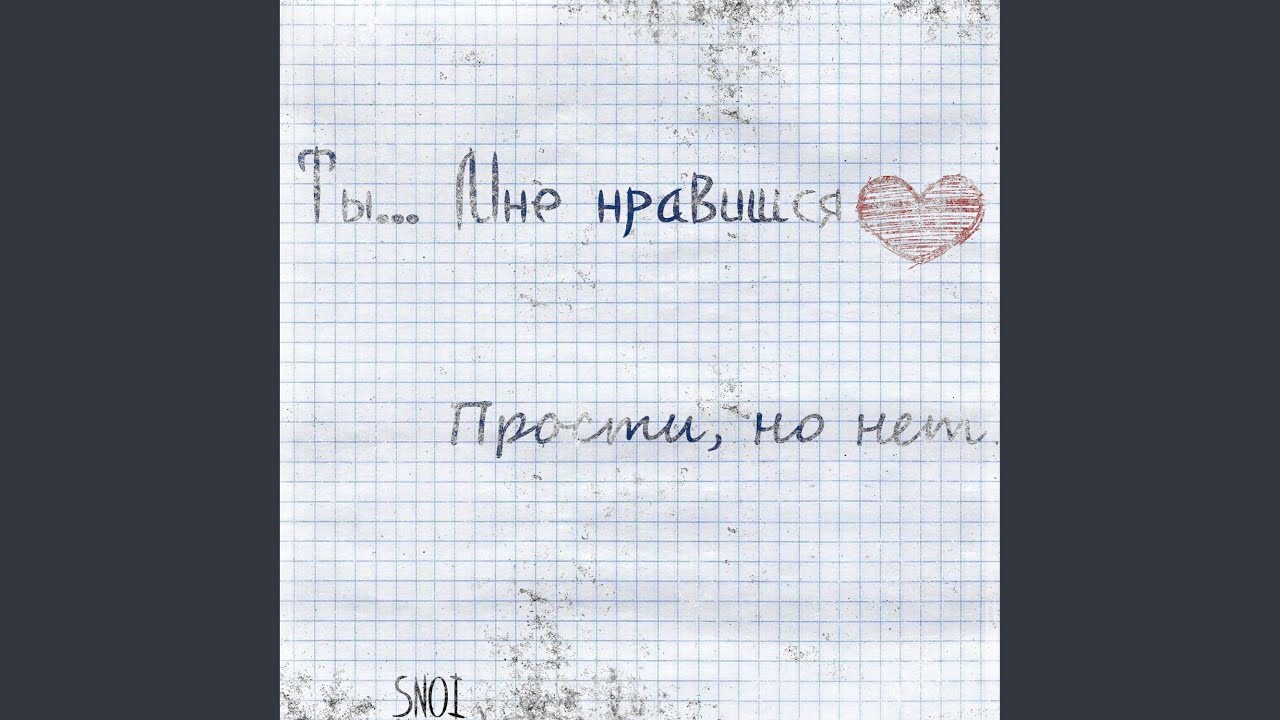 Ты... Мне нравишся
Прости, но нет.
SNOI